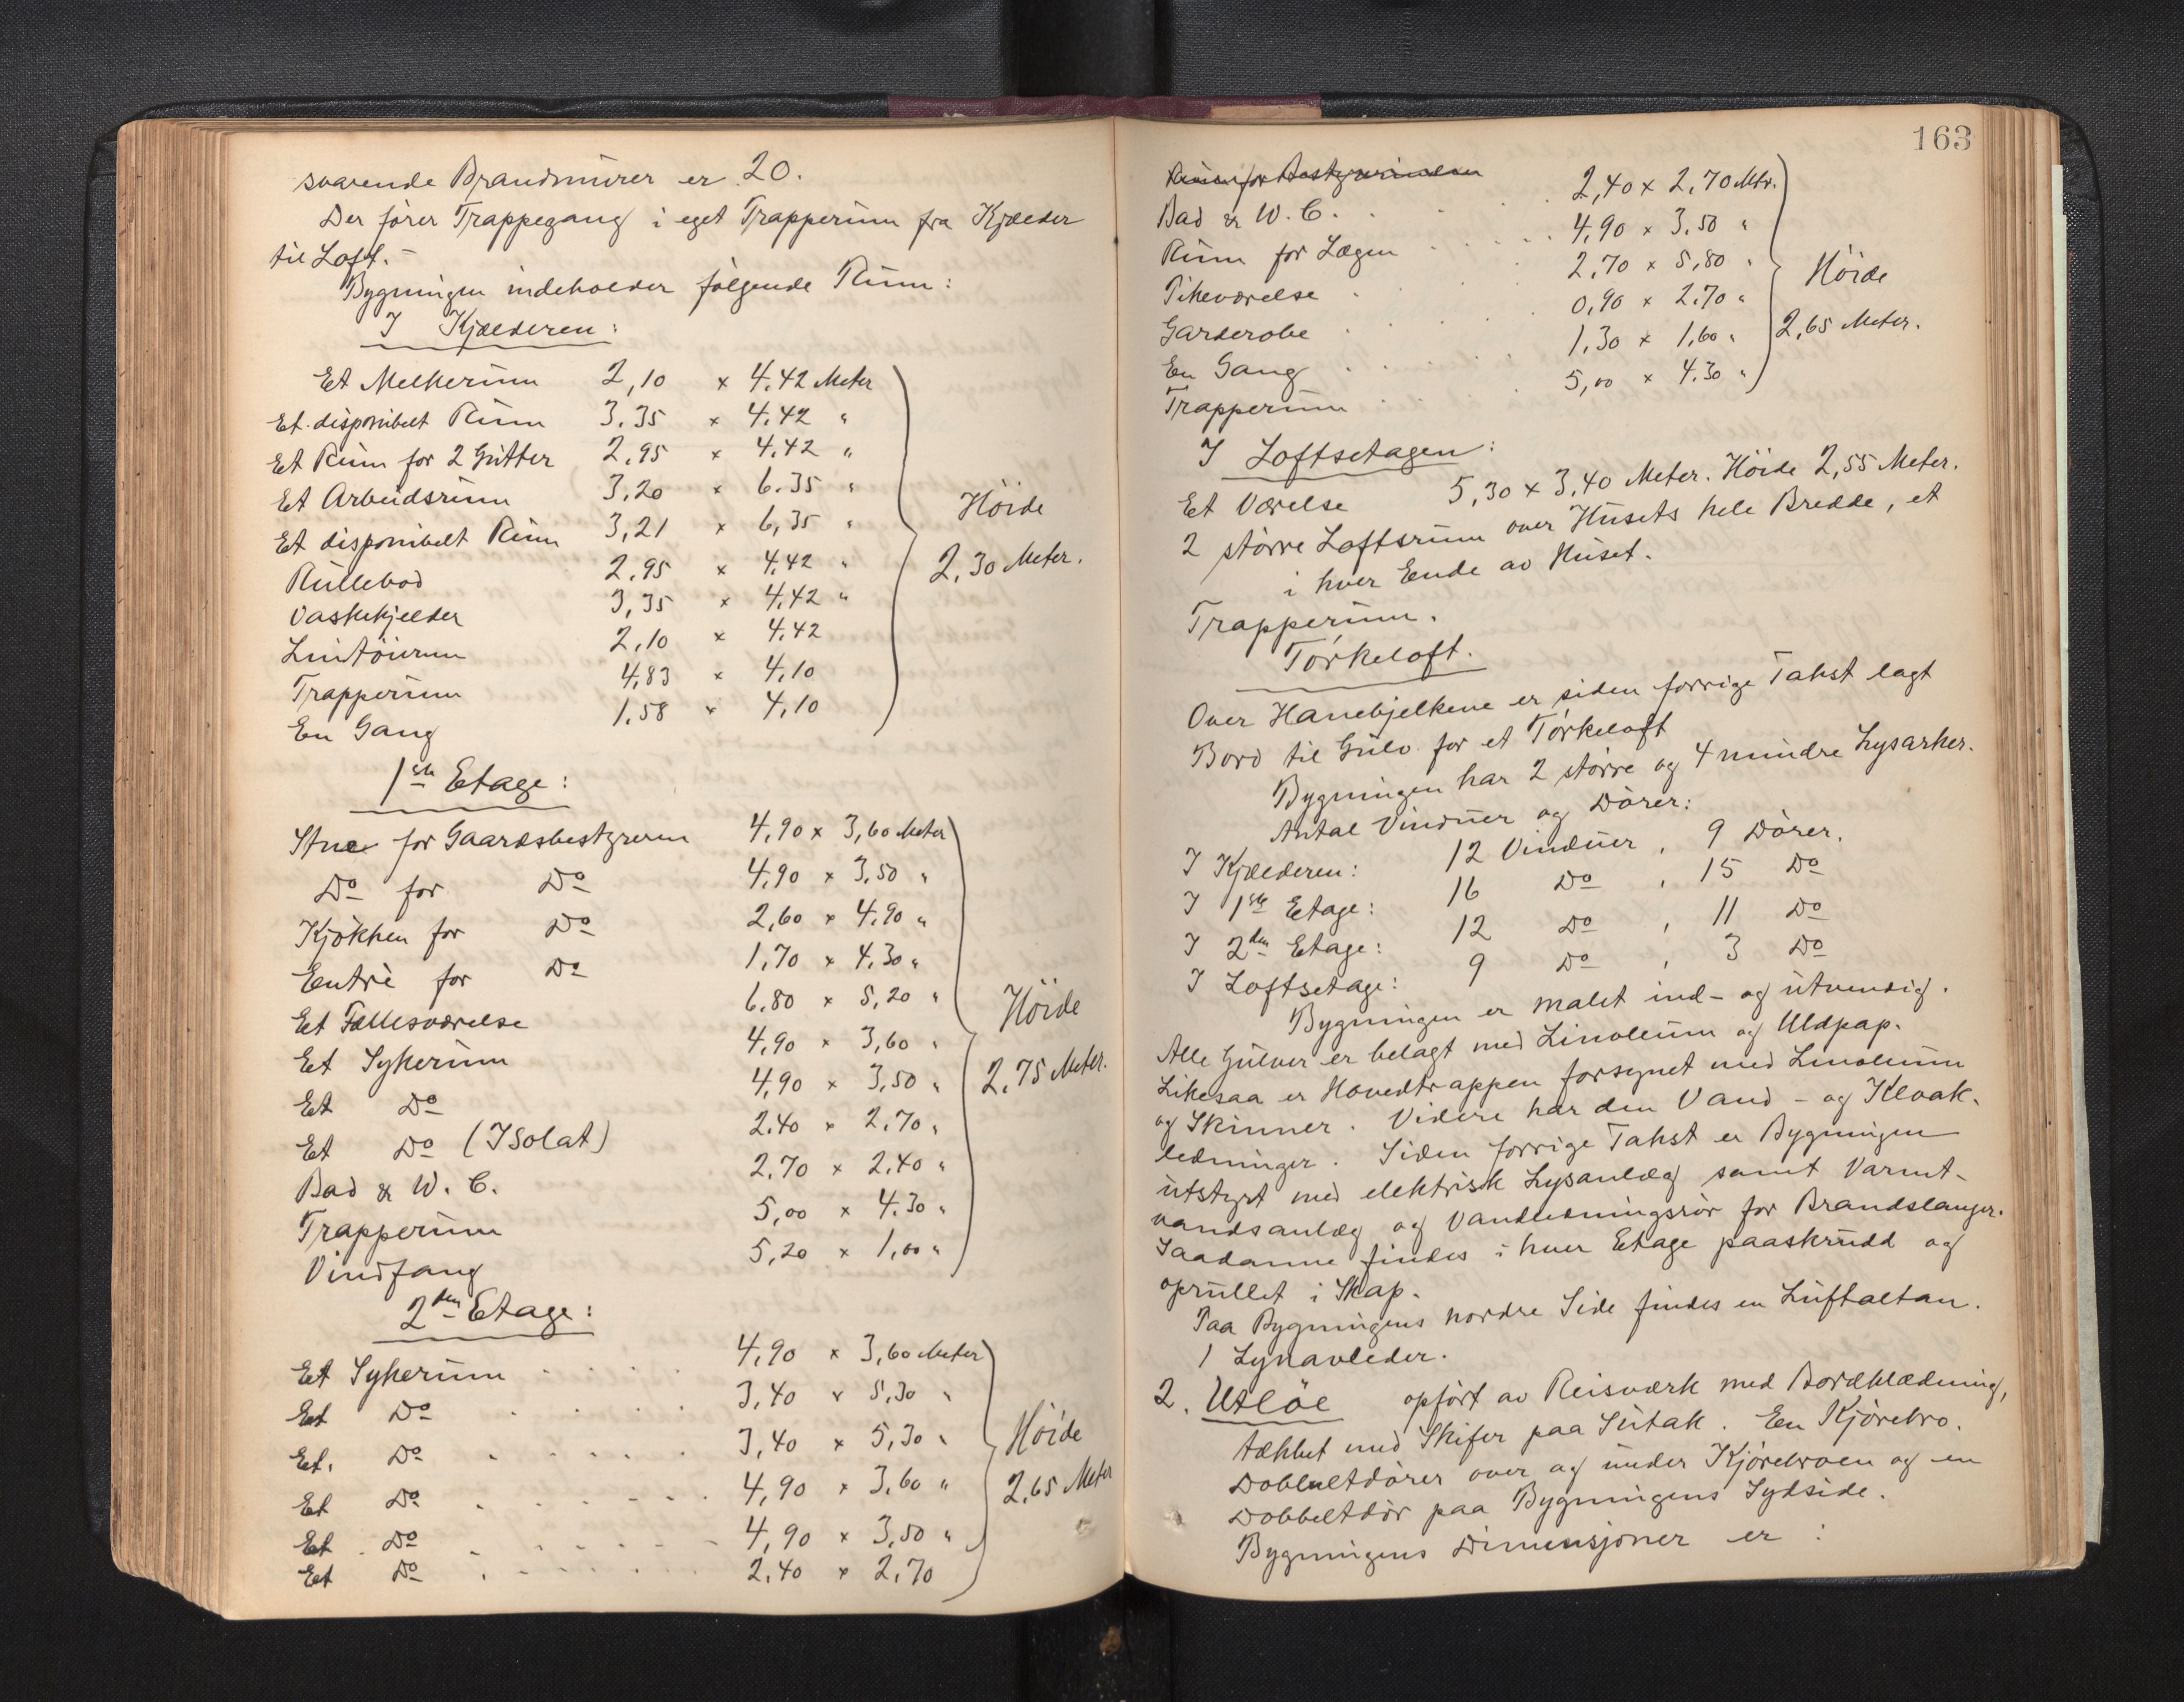 svarende Brandmürer er 20.
Der fører Trappegang i eget Trapperüm fra Kjælder
til Loft. –
Bygningen indeholder følgende Rüm:
I Kjælderen:
Et Melkerüm 2,10 x 4.42 Meter
Et disponibelt Rüm 3.35 x 4.42 "
Et Rüm for 2 Gütter 2.95 x 4.42 "
Et Arbeidsrüm 3,20 x 6.35 "
Et disponibelt Rüm 3,21 x 6,35 "
Rüllebod 2.95 x 4.42 "
Vaskekjelder 3,35 x 4.42 "
Lintöirum 2,10 x 4.42
Trapperüm 4,83 x 4,10
En Gang 1.58 x 4,10
Höide
2,30 Meter.
1ste Etage:
Stue for Gaardsbestyreren 4,90 x 3,60 Meter
Do for Do 4,90 x 3,50 "
Kjökken for Do 2,60 x 4.90 "
Entrè for Do 1,70 x 4,30 "
Et Fællesværelse 6.80 x 5,20 "
Et Sykerüm 4,90 x 3,60 "
Et Do 4,90 x 3,50 "
Et Do (Isolat) 2.40 x 2,70 "
Bad & W. C. 2.70 x 2.40 "
Trapperüm 5,00 x 4.30 "
Vindfang 5,20 x 1,00 "
Höide
2,75 Meter.
2den Etage:
Et Sykerüm 4,90 x 3,60 Meter
Et Do 3,40 x 5,30 "
Et. Do 3,40 x 5,30 "
Et Do 4,90 x 3,60 "
Et Do 4,90 x 3,50 "
Et Do 2,40 x 2,70
Höide
2,65 Meter
163
Rüm for Bestyrerinden
Bad & W. C. 2,40 x 2,70 Mtr.
Rüm for Lægen 4,90 x 3.50 "
Pikeværelse 2,70 x 5,80 "
Garderobe 0,90 x 2.70 "
En Gang 1,30 x 1,60 "
Trapperüm 5,00 x 4.30 "
Höide
2,65 Meter.
I Loftsetagen:
Et Værelse 5,30 x 3,40 Meter. Höide 2,55 Meter.
2 större Loftsrüm over Hüsets hele Bredde, et
i hver Ende av Hüset.
Trapperüm.
Törkeloft.
Over Hanebjelkene er siden forrige Takst lagt
Bord til Gülv for et Törkeloft
Bygningen har 2 större og 4 mindre Lysarker.
Antal Vindüer og Dörer:
I Kjælderen: 12 Vindüer, 9 Dörer.
I 1ste Etage: 16 Do, 15 Do
I 2den Etage: 12 Do, 11 Do
I Loftsetage: 9 Do, 3 Do
Bygningen er malet ind- og ütvendig.
Alle Gülver er belagt med Linoleüm og Uldpap.
Likesaa er Hovedtrappen forsynet med Linoleüm
og Skinner. Videre har den Vand- og Kloak-
ledninger. Siden forrige Takst er Bygningen
ütstyrt med elektrisk Lysanlæg samt Varmt-
vandsanlæg og Vandledningsrör for Brandslanger.
Saadanne findes i hver Etage paaskrüdd og
oprüllet i Skap.
Paa Bygningens nordre Side findes en Lüftaltan.
1 Lynavleder.
2. Utlöe opfört av Reisværk med Bordklædning,
tækket med Skifer paa Sütak. En Kjörebro.
Dobbeltdörer over og ünder Kjörebroen og en
Dobbeltdör paa Bygningens Sydside.
Bygningens Dimensjoner er :